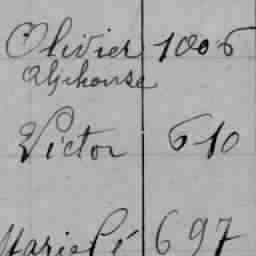 Olivier 1006
Alphonse
Victor 610
697